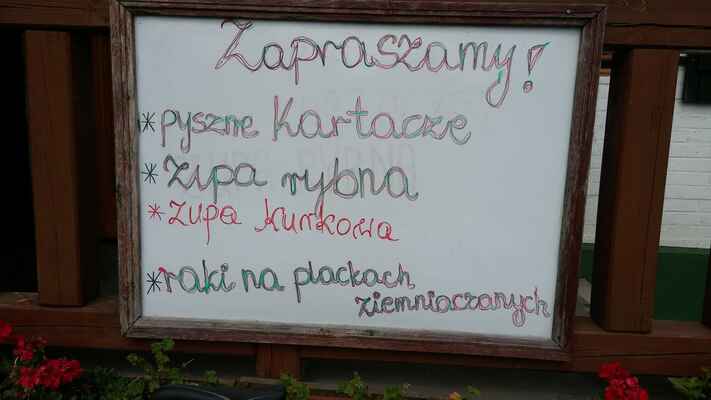 Zapraszamy!
* pyszne Kartacze
* zupa rybna
* zupa kurkowa
* raki na plackach
ziemniaczanych